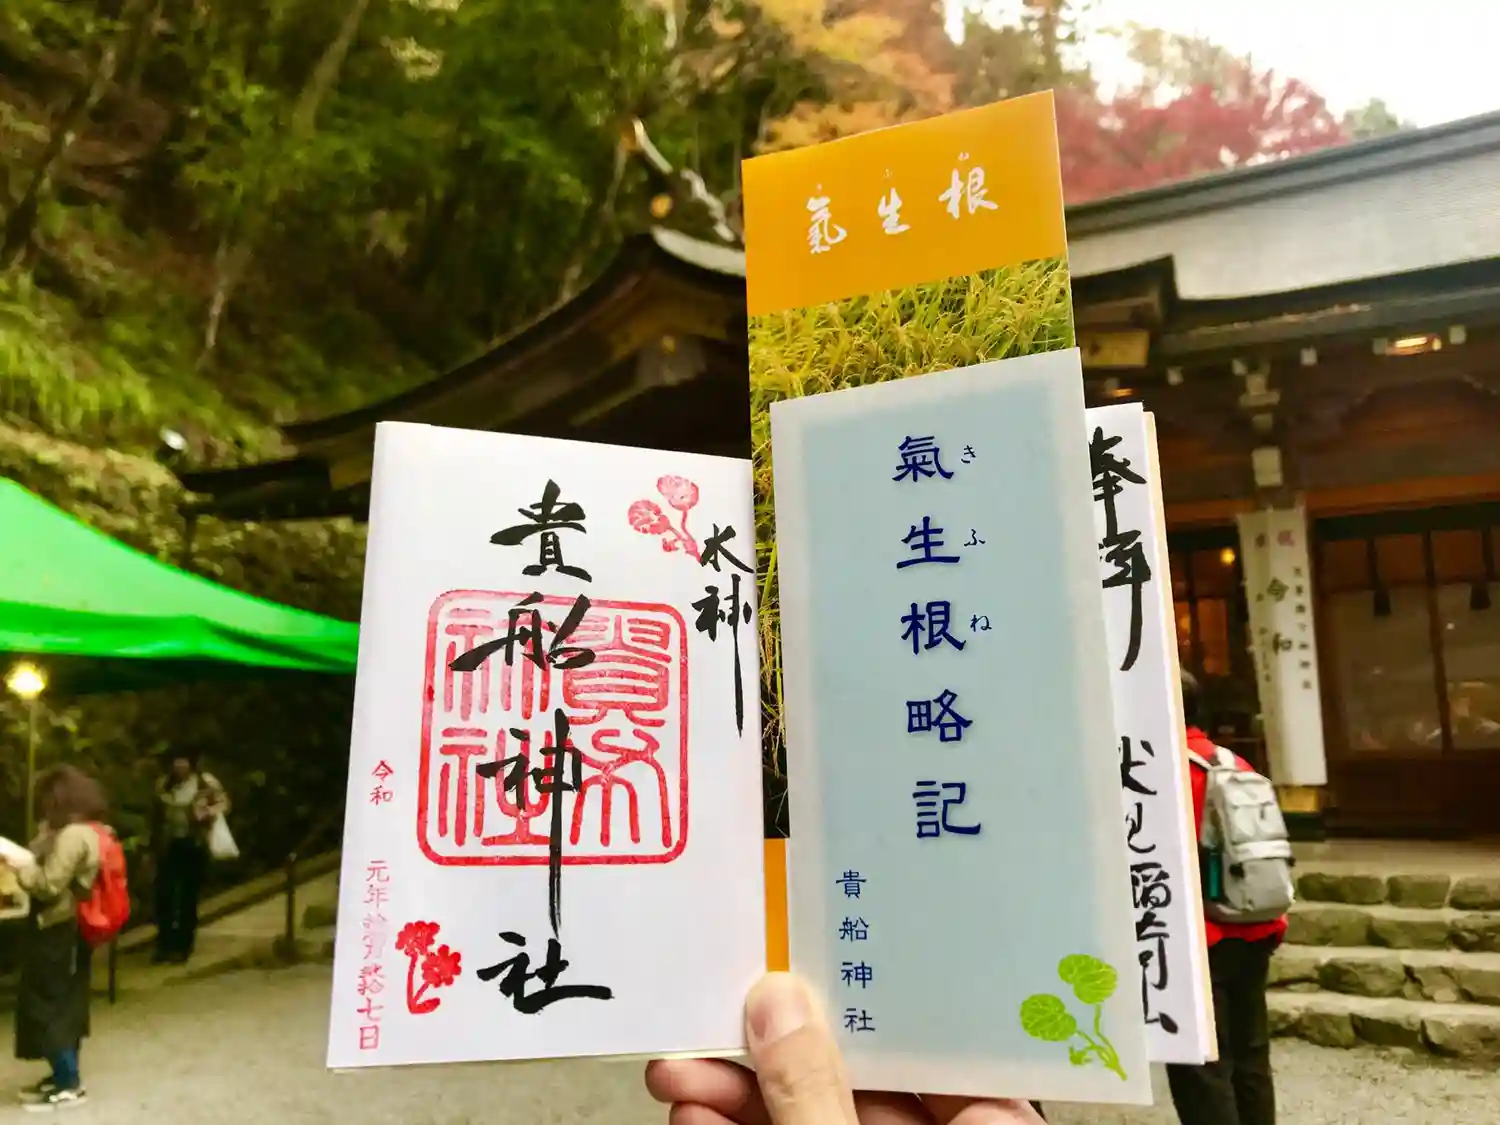 水神
貴船神社
貴船神社
令和
元年拾一月弐拾七日
氣生根
氣生根略記
きふね
貴船神社
奉拝
伏見稲荷山
令和